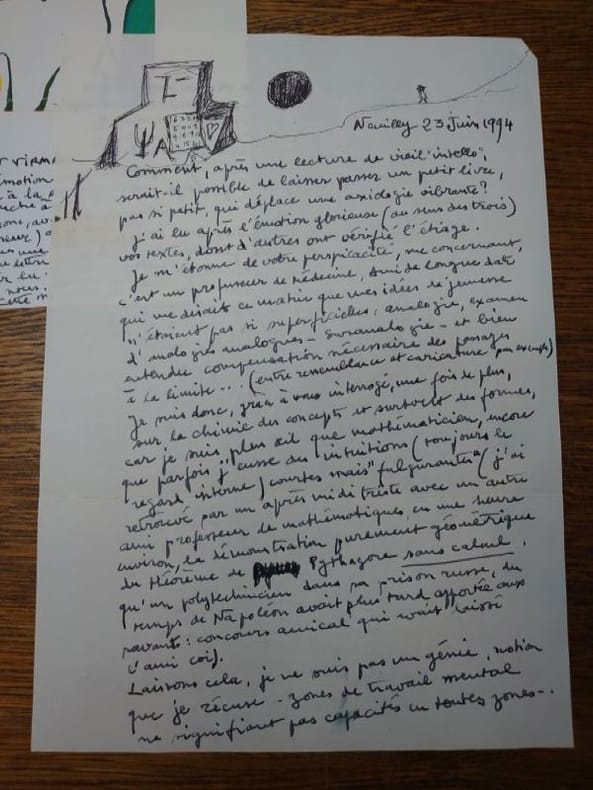 Neuilly 23 juin 1994
Comment, après une lecture de vieil "intello",
serait-il possible de laisser passer un petit livre,
pas si petit, qui déplace une axiologie vibrante?
J'ai lu après l'émotion glorieuse (au sens des trois)
vos textes, dont d'autres ont vérifié l'étiage.
Je m'étonne de votre perspicacité, me concernant,
c'est un professeur de médecine, ami de longue date,
qui me disait ce matin que mes idées de jeunesse
n'étaient pas si superficielles, analogie, examen
d'analogies analogues - suranalogie - et bien
entendu compensation nécessaire des passages
à la limite... (entre ressemblance et caricature par exemple)
Je suis donc, grâce à vous interrogé, une fois de plus,
sur la chimie des concepts et surtout des formes,
car je suis plus œil que mathématicien, encore
que parfois j'eusse des intuitions (toujours le
regard interne) courtes mais "fulgurantes" (j'ai
retrouvé par un après midi triste avec un autre
ami professeur de mathématiques, en une heure
environ, la démonstration purement géométrique
du théorème de Pythagore sans calcul,
qu'un polytechnicien dans sa prison russe, du
temps de Napoléon avait plus tard apportée aux
savants: concours amical qui vait laissé
l'ami coi).
Laissons cela, je ne suis pas un génie, notion
que je récuse - zones de travail mental
ne signifiant pas capacités en toutes zones -.